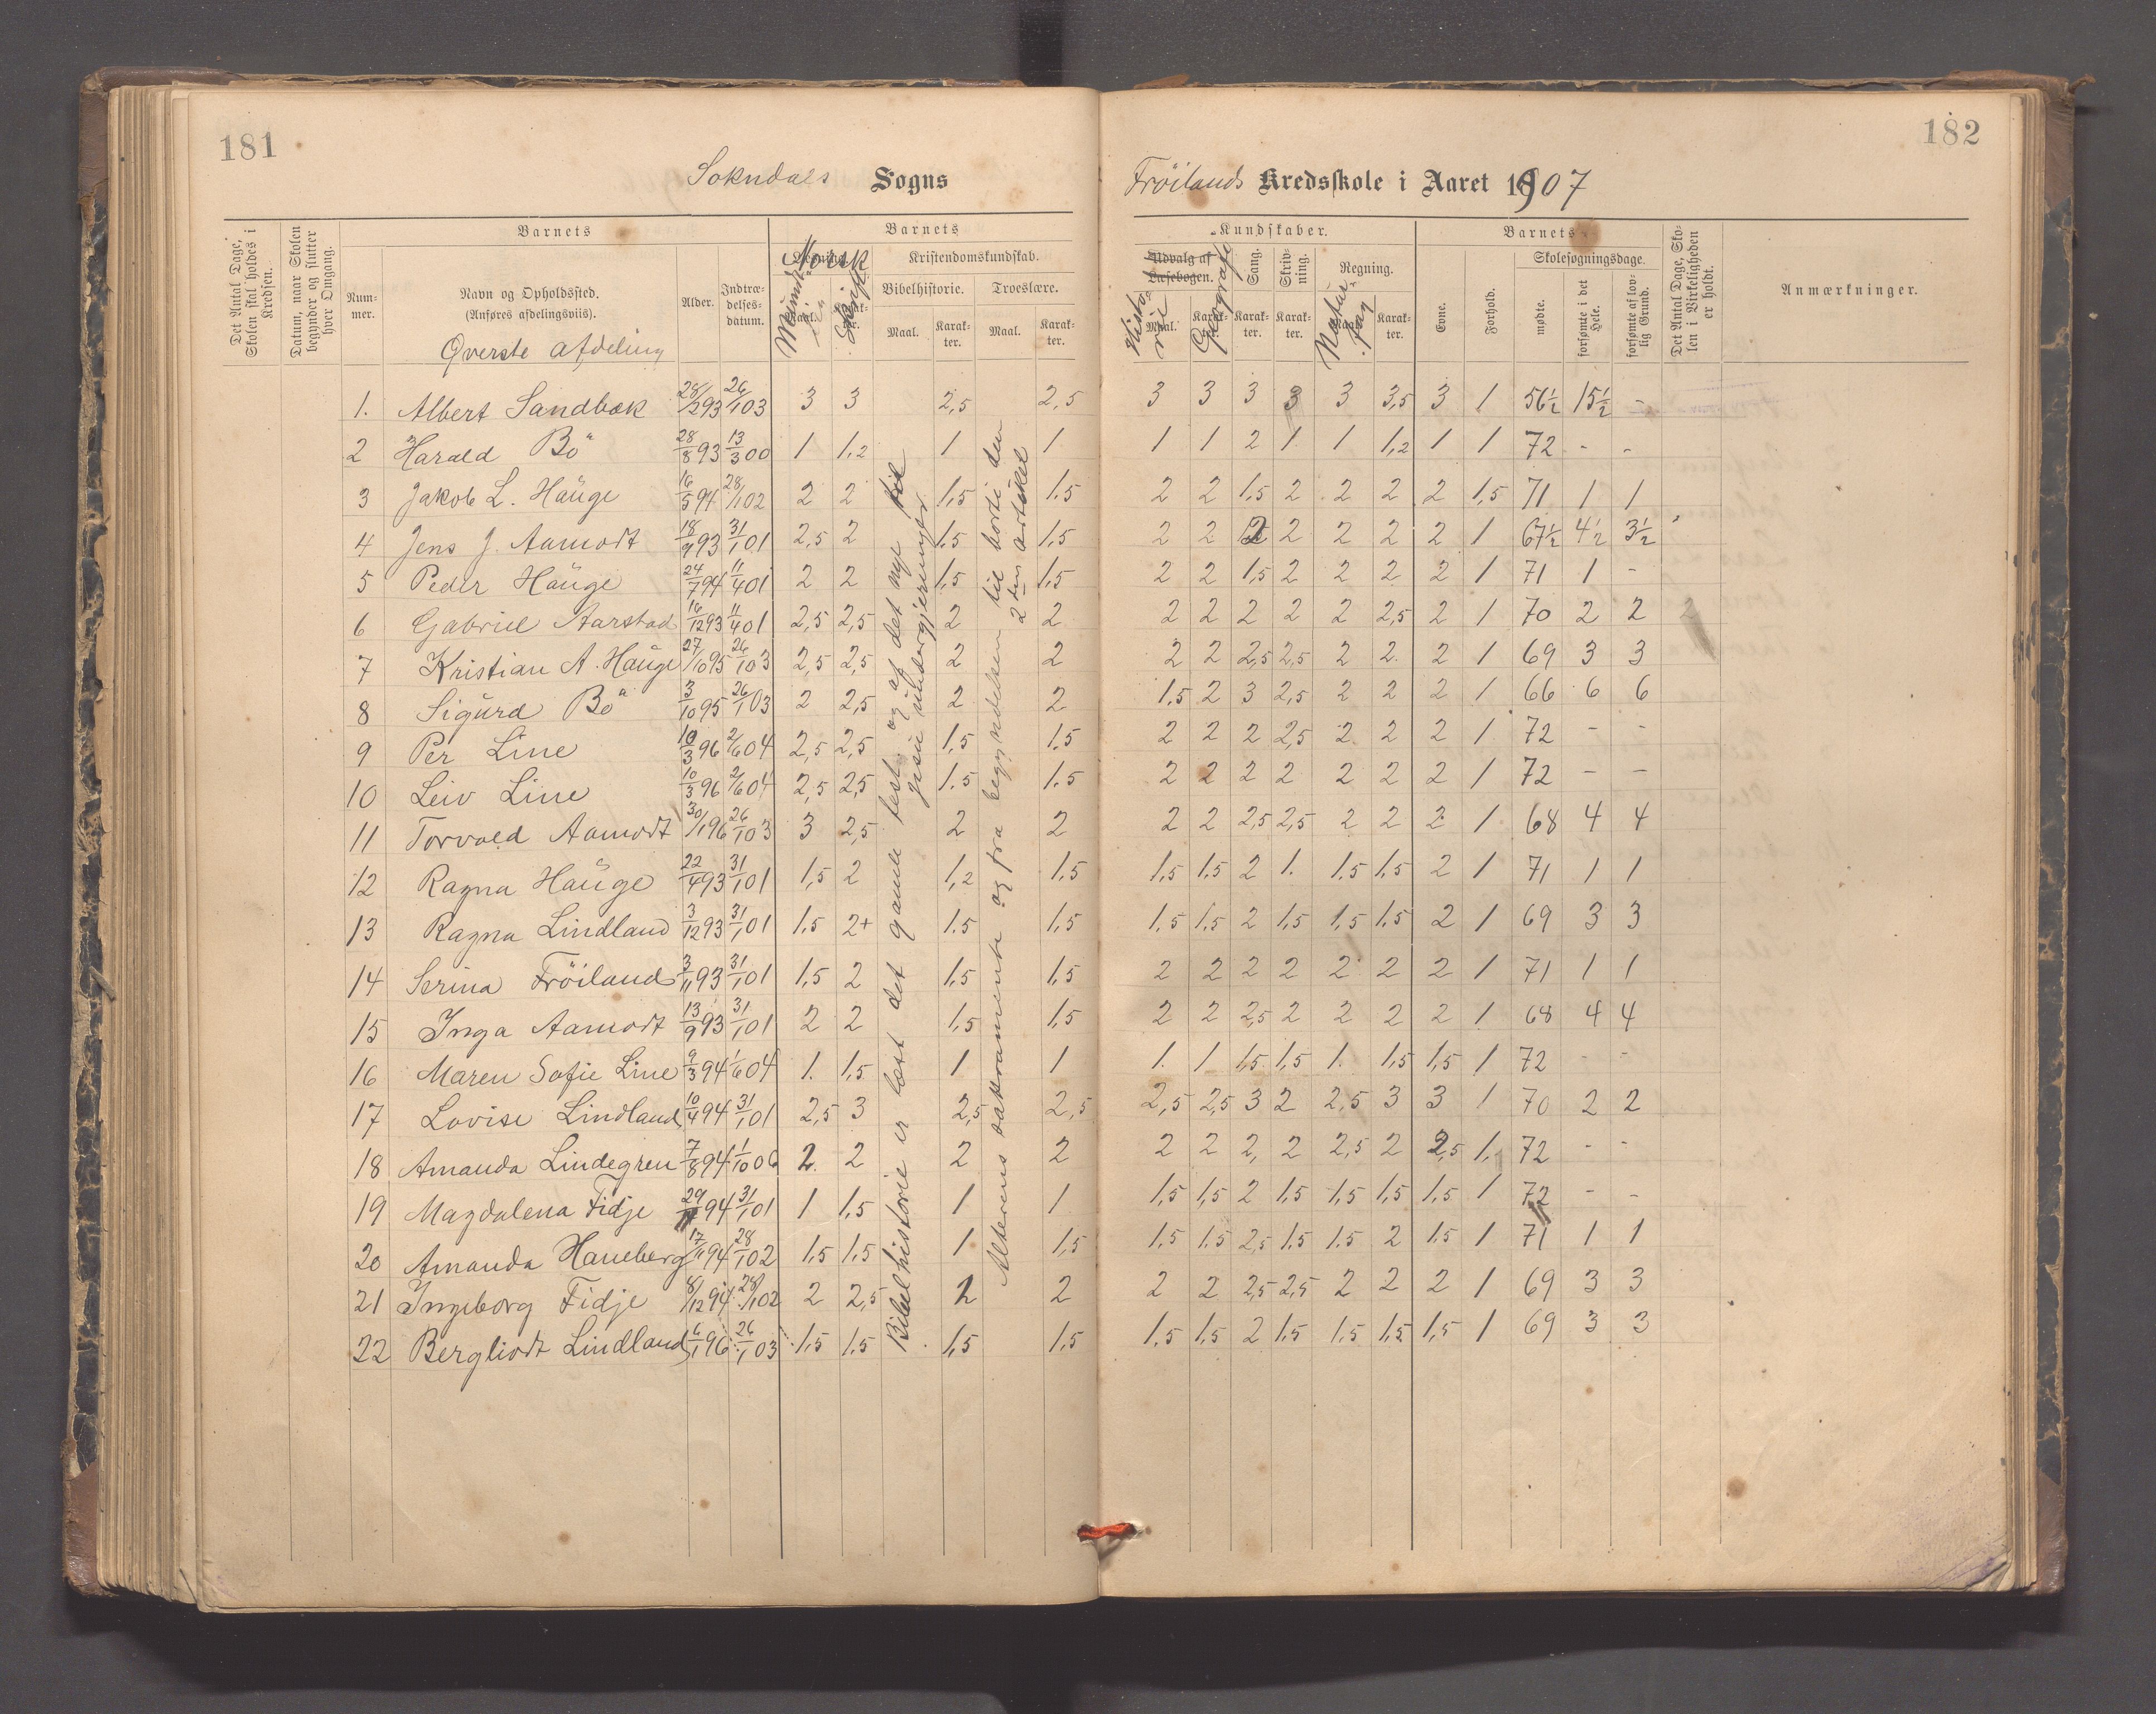 181
182
Sokndals Sogns
Fröilands Kredsskole i Aaret 1907
Det Antal Dage, Skolen skal holdes i Kredsen.
Datum, naar Skolen begynder og slutter hver Omgang.
Barnets
Num-mer.
Navn og Opholdssted.
(Anføres afdelingsviis).
Øverste afdeling
Alder.
Indtræ-delses-datum.
Barnets
Norsk
Mundt-
Skrift
Kristendomskundskab.
Bibelhistorie.
Troeslære.
Maal.
Karak-ter.
Maal.
Karak-ter.
Kundskaber.
Udvalg af Læsebogen.
Histo-rie
Geografi
Maal.
Karak-ter.
Sang.
Karak-ter.
Skriv-ning.
Karak-ter.
Regning.
Natur-fag
Maal.
Karak-ter.
Barnets
Evne.
Forhold.
Skolesøgningsdage.
mødte.
forsømte i det Hele.
forsømte af lov-lig Grund.
Det Antal Dage, Sko-len i Virkeligheden er holdt.
Anmærkninger.
1. Albert Sandbæk 28/2 93 26/1 03 3 3 2,5 2,5 3 3 3 3 3 3,5 3 1 56½ 15½ -
2 Harald Bö 28/8 93 13/3 00 1 1,2 1 1 1 1 2 1 1 1,2 1 1 72 - -
3 Jakob L. Hauge 16/5 94 28/1 02 2 2 1,5 1,5 2 2 1,5 2 2 2 2 1,5 71 1 1
4 Jens J. Aamodt 18/9 93 31/1 01 2,5 2 1,5 1,5 2 2 2 2 2 2 2 1 67½ 4½ 3½
5 Peder Hauge 24/7 94 11/4 01 2 2 1,5 1,5 2 2 1,5 2 2 2 2 1 71 1 -
6 Gabriel Aarstad 16/12 93 11/4 01 2,5 2,5 2 2 2 2 2 2 2 2,5 2 1 70 2 2 2
7 Kristian A. Hauge 27/10 95 26/1 03 2,5 2,5 2 2 2 2 2,5 2,5 2 2 2 1 69 3 3
8 Sigurd Bö 3/10 95 26/1 03 2 2,5 2 2 1,5 2 3 2,5 2 2 2 1 66 6 6
9 Per Line 10/3 96 2/6 04 2,5 2,5 1,5 1,5 2 2 2 2,5 2 2 2 1 72 - -
10 Leiv Line 10/3 96 2/6 04 2,5 2,5 1.5 1.5 2 2 2 2 2 2 2 1 72 - -
11 Torvald Aamodt 30/1 96 26/1 03 3 2,5 2 2 2 2 2,5 2,5 2 2 2 1 68 4 4
12 Ragna Hauge 22/4 93 31/1 01 1,5 2 1,2 1,5 1,5 1,5 2 1. 1.5 1,5 2 1 71 1 1
13 Ragna Lindland 3/12 93 31/1 01 1.5 2+ 1.5 1,5 1,5 1,5 2 1,5 1,5 1,5 2 1 69 3 3
14 Serina Fröiland 3/11 93 31/1 01 1,5 2 1,5 1,5 2 2 2 2 2 2 2 1 71 1 1
15 Inga Aamodt 13/9 93 31/1 01 2 2 1,5 1,5 2 2 2,5 2 2 2 2 1 68 4 4
16 Maren Sofie Line 9/3 94 1/6 04 1. 1,5 1 1 1. 1 1,5 1,5 1. 1,5 1,5 1 72 - -
17 Lovise Lindland 10/4 94 31/1 01 2,5 3 2,5 2,5 2,5 2,5 3 2 2,5 3 3 1 70 2 2
18 Amanda Lindegren 7/8 94 1/10 06 2. 2 2 2 2 2 2, 2 2,5 2 2,5 1. 72 - -
19 Magdalena Fidje 94 31/1 01 1 1,5 1 1 1,5 1,5 2 1,5 1,5 1,5 1,5 1 72 - -
20 Amanda Haneberg 17/11 94 28/1 02 1,5 1,5 1 1,5 1.5 1.5 2,5 1.5 1.5 2 1.5 1 71 1 1
21 Ingeborg Fidje 8/12 94 28/1 02 2 2,5 2 2 2 2 2,5 2,5 2 2 2 1 69 3 3
22 Bergliodt Lindland 6/1 96 26/1 03 1,5 1.5 1,5 1,5 1.5 1,5 2 1,5 1,5 1,5 1,5 1 69 3 3
Bibelhistorie er læst det gamle test. og af det nye til
jesu undergjerninger.
Alterens sakramente og fra begyndelsen til borti den
2den artikkel